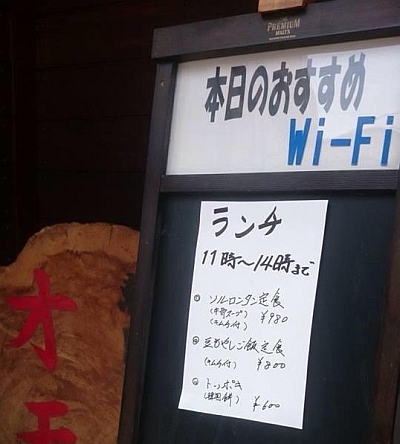 PREMIUM
MALT'S
本日のおすすめ
Wi-Fi
ランチ
11時～14時まで
ソルロンタン定食
(牛骨スープ) ¥980
(キムチ付)
豆もやしご飯定食
(キムチ付) ¥800
トッポキ
(韓国餅) ¥600
オ